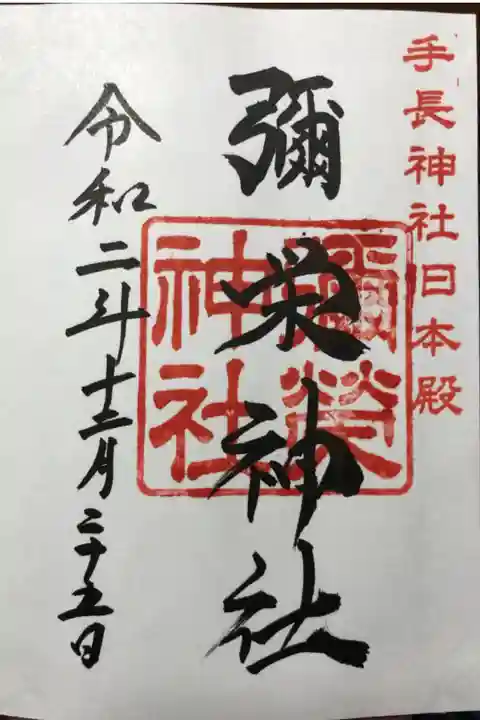 手長神社日本殿
彌栄神社
彌榮神社
令和二年十二月二十五日